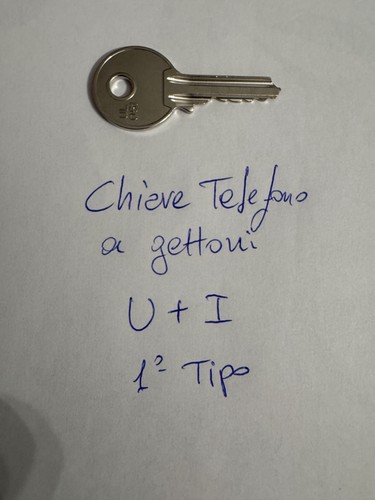 Chiave Telefono
a gettoni
U + I
1º Tipo